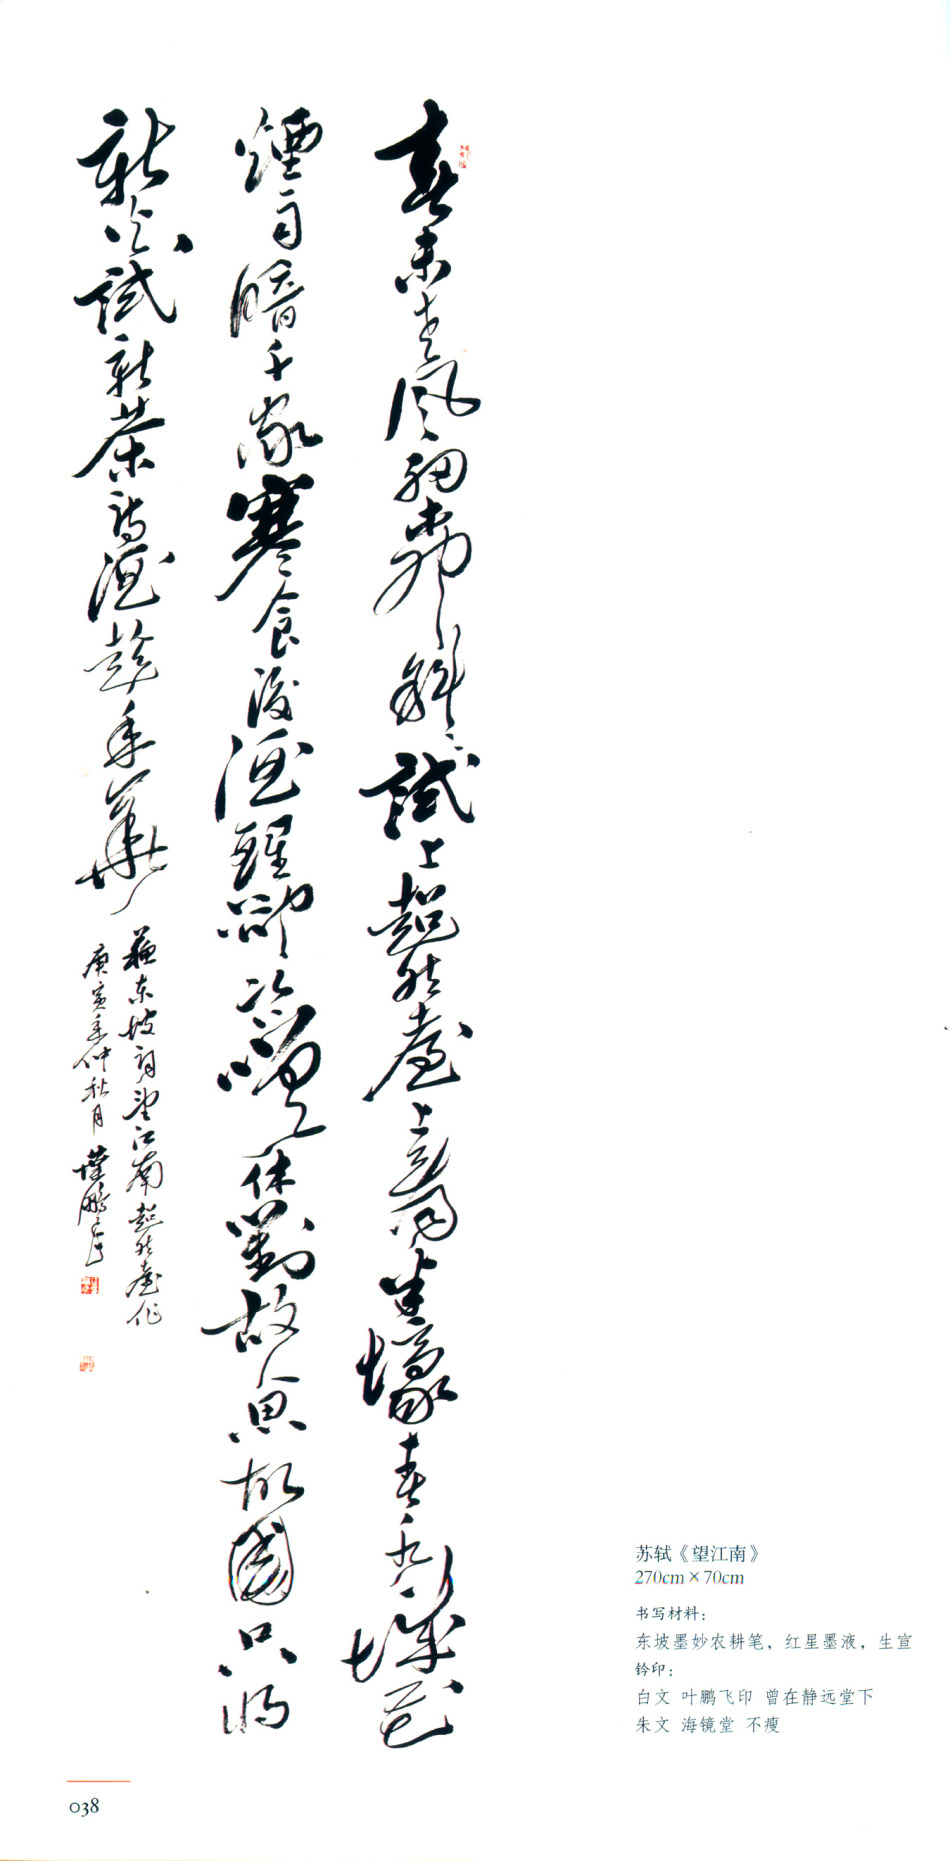 春未老風細柳斜斜試上超然臺上半壕春水一城花
煙雨暗千家寒食後酒醒卻咨嗟休對故人思故國只將
新火試新茶詩酒趁年華
蘇東坡詞望江南超然臺作
庚寅年仲秋月鵬
苏轼《望江南》
270cm×70cm
书写材料：
东坡墨妙农耕笔，红星墨液，生宣
钤印：
白文 叶鹏飞印 曾在静远堂下
朱文 海镜堂 不瘦
038